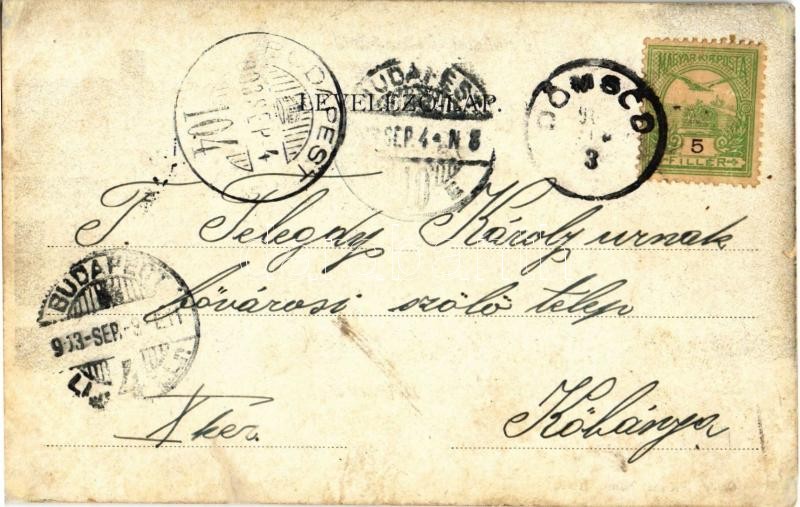 MAGYAR KIR. POSTA
5
FILLÉR
DÖMSÖD
3
BUDAPEST
903 SEP 4
104
BUDAPEST
SEP. 4 N 8
10
LEVELEZŐ-LAP.
T. Telegdy Károly urnak
fővárosi szőlő telep
X ker. Kőbánya
BUDAPEST
903-SEP.